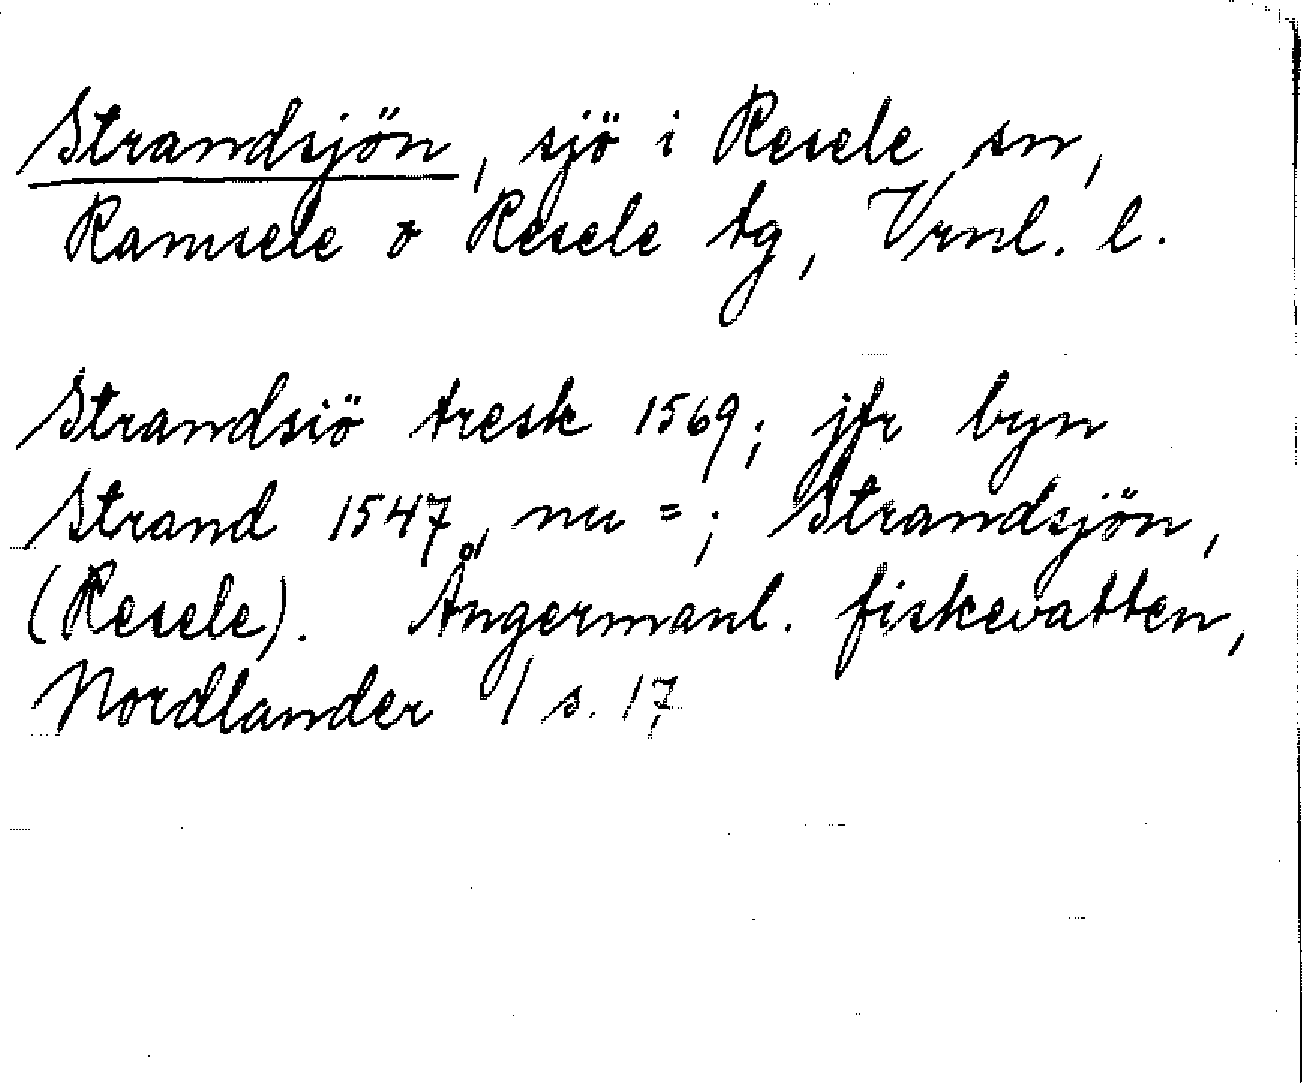 Strandsjön, sjö i Resele sn,
Ramsele o Resele tg, Vrnl. l.
Strandsiö tresk 1569; jfr byn
Strand 1547, nu =; Strandsjön,
(Resele). Ångermanl. fiskevatten,
Nordlander / s. 17